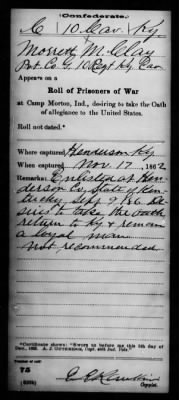 Confederate.
C 10 Cav. Ky
M. Clay
Pvt Co. G, 10 Regt Ky Cav
Appears on a
Roll of Prisoners of War
at Camp Morton, Ind., desiring to take the Oath
of allegiance to the United States.
Roll not dated.
Where captured Henderson Ky
When captured Nov 17, 1862
Remarks: Enlisted at Hen
derson Co, State of Ken
tucky, Sept 9 186 De
sires to take the oath
return to Ky & remain
a loyal man
not recommended
"Certificate shows: "Sworn us before me this 5th day of
Number of roll:
75
Copyist.